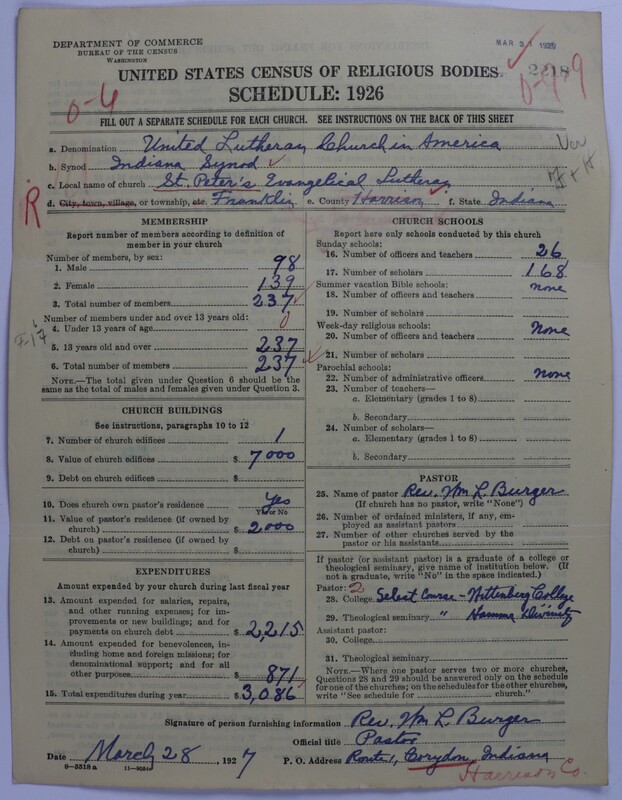 DEPARTMENT OF COMMERCE
BUREAU OF THE CENSUS
WASHINGTON
MAR 31 1927
2218
UNITED STATES CENSUS OF RELIGIOUS BODIES
SCHEDULE: 1926
0-4
FILL OUT A SEPARATE SCHEDULE FOR EACH CHURCH. SEE INSTRUCTIONS ON THE BACK OF THIS SHEET
a. Denomination United Lutheran Church in America
b. Synod Indiana Synod
c. Local name of church St. Peter's Evangelical Lutheran
R
d. City, town, village, or township, etc. Franklin e. County Harrison f. State Indiana
MEMBERSHIP
Report number of members according to definition of member in your church
Number of members, by sex:
1. Male 98
2. Female 139
3. Total number of members 237
Number of members under and over 13 years old:
4. Under 13 years of age 0
5. 13 years old and over 237
6. Total number of members 237
NOTE.—The total given under Question 6 should be the same as the total of males and females given under Question 3.
CHURCH BUILDINGS
See instructions, paragraphs 10 to 12
7. Number of church edifices 1
8. Value of church edifices $ 7000
9. Debt on church edifices $
10. Does church own pastor's residence Yes
Yes or No
11. Value of pastor's residence (if owned by church) $ 2000
12. Debt on pastor's residence (if owned by church) $
EXPENDITURES
Amount expended by your church during last fiscal year
13. Amount expended for salaries, repairs, and other running expenses; for improvements or new buildings; and for payments on church debt $ 2,215
14. Amount expended for benevolences, including home and foreign missions; for denominational support; and for all other purposes $ 871
15. Total expenditures during year $ 3,086
CHURCH SCHOOLS
Report here only schools conducted by this church
Sunday schools:
16. Number of officers and teachers 26
17. Number of scholars 168
Summer vacation Bible schools: none
18. Number of officers and teachers
19. Number of scholars
Week-day religious schools: None
20. Number of officers and teachers
21. Number of scholars
Parochial schools:
22. Number of administrative officers none
23. Number of teachers—
a. Elementary (grades 1 to 8)
b. Secondary
24. Number of scholars—
a. Elementary (grades 1 to 8)
b. Secondary
PASTOR
25. Name of pastor Rev. Wm L. Burger
(If church has no pastor, write "None")
26. Number of ordained ministers, if any, employed as assistant pastors
27. Number of other churches served by the pastor or his assistants
If pastor (or assistant pastor) is a graduate of a college or theological seminary, give name of institution below. (If not a graduate, write "No" in the space indicated.)
Pastor: 2
28. College Select Course - Wittenberg College
29. Theological seminary " Hamma Divinity
Assistant pastor:
30. College
31. Theological seminary
NOTE.—Where one pastor serves two or more churches, Questions 28 and 29 should be answered only on the schedule for one of the churches; on the schedules for the other churches, write "See schedule for church."
Signature of person furnishing information Rev. Wm L. Burger
Official title Pastor
Date March 28, 1927 P. O. Address Route 1, Corydon, Indiana
8-5518a 11-9051
Harrison Co.